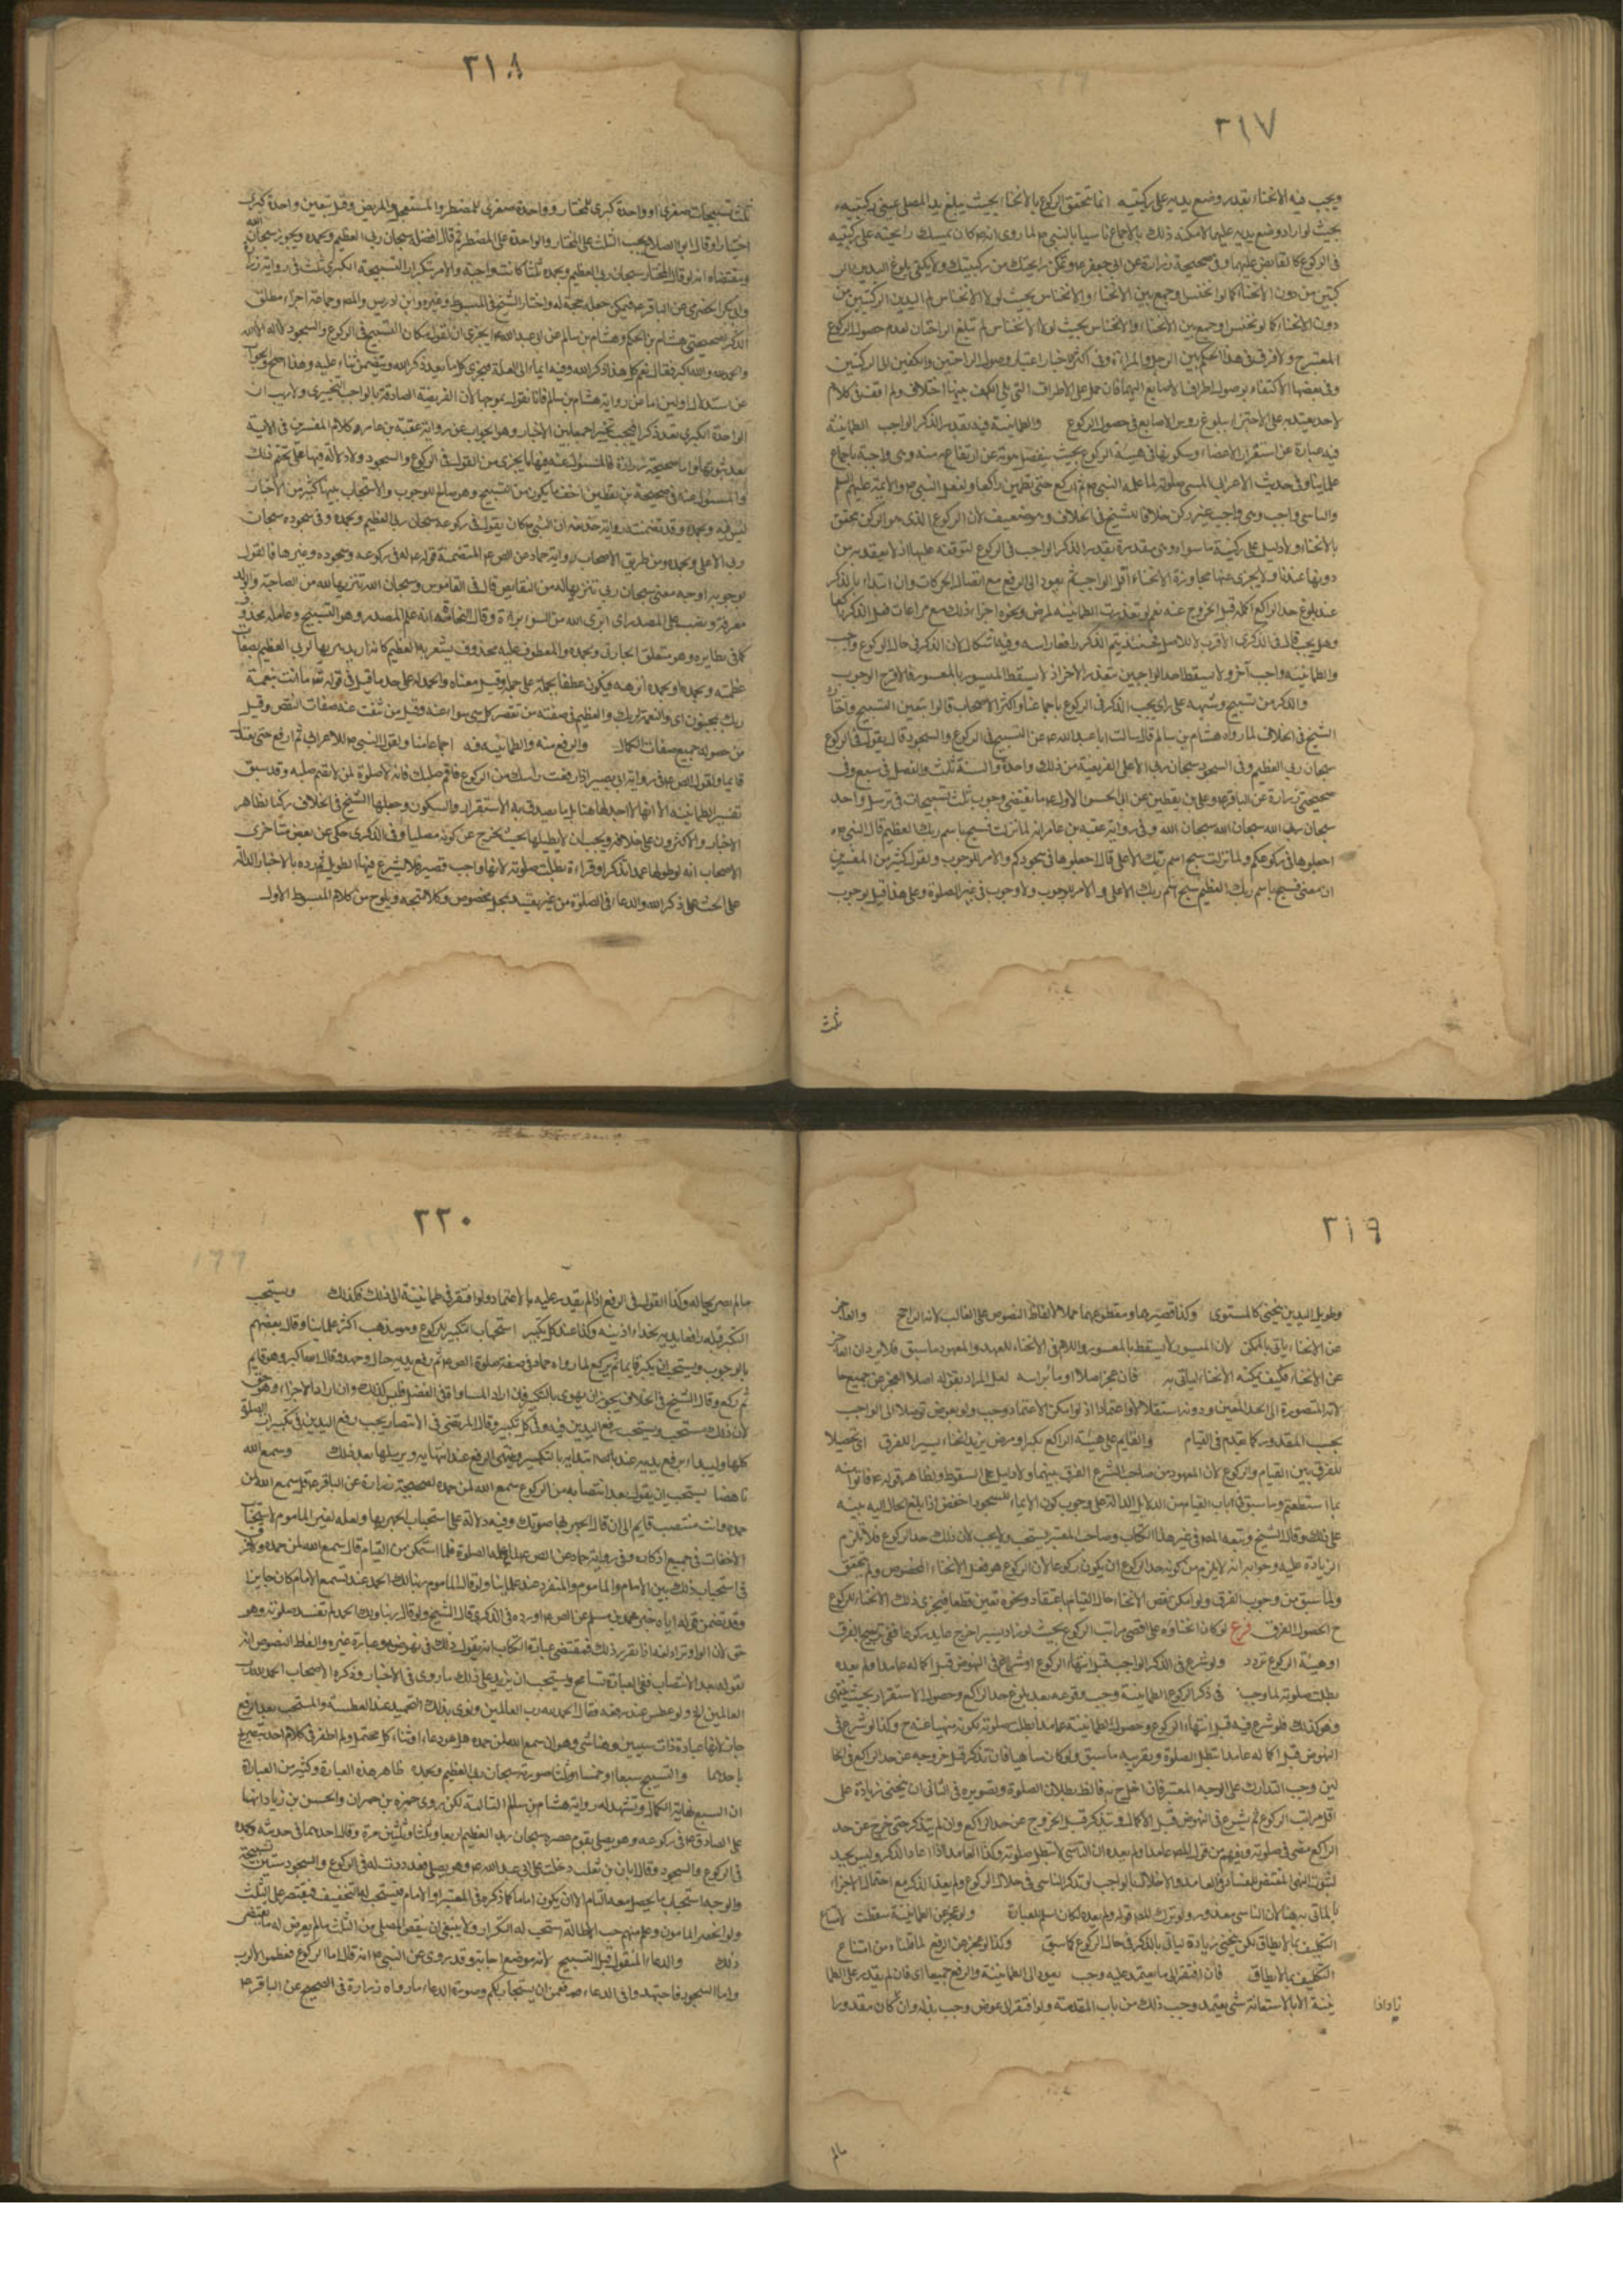 ٣١٧
ويجب فيه الانحناء بقدر وضع يديه على ركبتيه انما تحقق الركوع بالانحناء بحيث يبلغ يد المصلي عيني ركبتيه
بحيث لو اراد وضع يديه عليهما لامكنه ذلك بالاجماع تاسيا بالنبي ص لما روي انه كان يمسك راحتيه على ركبتيه
في الركوع كالقابض عليهما وفي صحيحة زرارة عن ابي جعفر ع وتمكن راحتيك من ركبتيك ولا يكفي بلوغ اليدين الر
كبتين من دون الانحناء كما لو انخنس او جمع بين الانحناء والانخناس بحيث لولا الانخناس لم تبلغ الراحتان لعدم حصول الركوع
المعتبر ح ولا فرق في هذا الحكم بين الرجل والمراة وفي اكثر الاخبار اعتبار وصول الراحتين والكفين الى الركبتين
وفي بعضها الاكتفاء بوصول اطراف الاصابع اليهما فان حمل على الاطراف التي تلي الكف جمعا بينها اختلاف ولم اقف في كلام
لاحد يعتد به على الاجتزاء ببلوغ رؤس الاصابع في حصول الركوع والطمانينة فيه بقدر الذكر الواجب الطمانينة
فيه عبارة عن استقرار الاعضاء وسكونها في هيئة الركوع بحيث ينفصل هويه عن ارتفاعه منه وهي واجبة باجماع
علماينا وفي حديث الاعرابي المسي صلوته لما علمه النبي ص ثم اركع حتى تطمئن راكعا ولفعل النبي ص والائمة عليهم السلم
والتاسي واجب وهي واجب غير ركن خلافا للشيخ في الخلاف وهو ضعيف لان الركوع الذي هو الركن يتحقق
بالانحناء ولا دليل على ركنية ما سواه وهي مقدرة بقدر الذكر الواجب في الركوع لتوقفه عليها اذ لا يعتد به من
دونها عندنا ولا يجزي عنها مجاوزة الانحناء اقل الواجب ثم يعود الى الرفع مع اتصال الحركات وان ابتداء بالذكر
عند بلوغ حد الراكع اكمله قبل الخروج عنه نعم لو تعذرت الطمانينة لمرض ونحوه اجزاء ذلك مع مراعات فعل الذكر راكعا
وهل يجب قال في الذكرى الاقرب لا للاصل فحينئذ يتم الذكر رافعا راسه وفيه اشكال لان الذكر في حال الركوع واجب
والطمانينة واجب آخر ولا يسقط احد الواجبين بتعذر الاخر اذ لا يسقط الميسور بالمعسور فالاقرب الوجوب
والذكر من تسبيح وشبهه على راي يجب الذكر في الركوع باجماعنا واكثر الاصحاب قالوا بتعين التسبيح واختاره
الشيخ في الخلاف لما رواه هشام بن سالم قال سالت ابا عبد الله ع عن التسبيح في الركوع والسجود قال يقول في الركوع
سبحان ربي العظيم وفي السجود سبحان ربي الاعلى الفريضة من ذلك واحدة والسنة ثلث والفضل في سبع وفي
صحيحتي زرارة عن الباقر ع وعلي بن يقطين عن ابي الحسن الاول ع ما يقتضي وجوب ثلث تسبيحات في ترسل وواحد
سبحان ربي الله سبحان الله سبحان الله وفي رواية عقبة بن عامر انه لما نزلت فسبح باسم ربك العظيم قال النبي ص
اجعلوها في ركوعكم ولما نزلت سبح اسم ربك الاعلى قال اجعلوها في سجودكم والامر للوجوب ولقول كثير من المفسرين
ان معنى فسبح باسم ربك العظيم سبح اسم ربك الاعلى والامر للوجوب ولا وجوب في غير الصلوة وعلى هذا قيل بوجوب
ثلث
٣١٨
ثلث تسبيحات صغرى او واحدة كبرى للمختار وواحدة صغرى للمضطر والمستعجل والمريض وقيل بتعين واحدة كبرى
اختيارا وقال ابو الصلاح يجب الثلث على المختار والواحدة على المضطر ثم قال افضله سبحان ربي العظيم وبحمده ويجوز سبحان الله
ومقتضاه انه لو قال المختار سبحان ربي العظيم وبحمده ثلثا كانت واجبة والامر بتكرار التسبيحة الكبرى ثلث في رواية
وابي بكر الحضرمي عن الباقر ع فيمكن جعله حجة له واختار الشيخ في المبسوط وغيره وابن ادريس والمص وجماعة اجزاء مطلق
الذكر لصحيحتي هشام بن الحكم وهشام بن سالم عن ابي عبد الله ع ايجزي ان نقول مكان التسبيح في الركوع والسجود لا اله الا الله
والحمد لله والله اكبر فقال نعم كل هذا ذكر الله وفيه ايماء الى العلة فيجزي كل ما يعد ذكر الله ويتضمن ثناء عليه وهذا اصح والجواب
عن استدلال الاولين اما عن رواية هشام بن سالم فانا نقول بموجبها لان الفريضة الصادقة بالواجب التخييري ولا ريب ان
الواحدة الكبرى تعد ذكرا فيجب تخييرا جمعا بين الاخبار وهو الجواب عن رواية عقبة بن عامر وكلام المفسرين في الاية
بعد ثبوتها واما صحيحة زرارة فالمسؤل عنه فيها ما يجزي من القول في الركوع والسجود ولا دلالة فيها على تحتم ذلك
والمسئول عنه في صحيحة بن يقطين اخف ما يكون من التسبيح وهو صالح للوجوب والاستحباب جمعا كثير من الاخبار
ليس فيه وبحمده وقد تضمنته رواية حذيفة ان النبي ص كان يقول في ركوعه سبحان ربي العظيم وبحمده وفي سجوده سبحان
ربي الاعلى وبحمده ومن طريق الاصحاب رواية حماد عن الص ع المتضمنة قوله ع له في ركوعه وسجوده وغيرها فالقول
بوجوبه اوجه معنى سبحان ربي تنزيها له من النقايص قال في القاموس وسبحان الله تنزيها لله من الصاحبة والولد
معرفة ونصب على المصدر اي ابرئ الله من السوء براءة وقال النحاة انه علم المصدر وهو التسبيح وعامله محذوف
كما في نظايره وهو متعلق الجار في وبحمده والمعطوف عليه محذوف يشعر به العظيم كانه اريد تنزيها لربي العظيم بصفات
عظمته وبحمده او بحمده انزهه ويكون عطفا لجملة على جملة وقيل معناه والحمد له على حد ما قيل في قوله تعالى ما انت بنعمة
ربك بمجنون اي والنعمة لربك والعظيم في صفته من تقصر كل شيء سواه عنه وقيل من تنفت عنه صفات النقص وقيل
من حصل له جميع صفات الكمال والرفع منه والطمانينة فيه اجماعا منا ولقول النبي ص للاعرابي ثم ارفع حتى تعتدل
قايما ولقول الص ع في رواية ابي بصير اذا رفعت راسك من الركوع فاقم صلبك فانه لا صلوة لمن لا يقيم صلبه وقد سبق
تفسير الطمانينة الا انها لا حد لها هنا بل ما يصدق به الاستقرار والسكون وجعلها الشيخ في الخلاف ركنا لظاهر
الاخبار والاكثرون على خلافه ويجب ان لا يطيلها بحيث يخرج عن كونه مصليا وفي الذكرى حكى عن بعض متاخري
الاصحاب انه لو طولها عمدا بذكر او قراءة بطلت صلوته لانها واجب قصير فلا يشرع فيها التطويل ثم رده بالاخبار الدالة
على الحث على ذكر الله والدعاء في الصلوة من غير تقييد بمحل مخصوص وكلامه متجه ويلوح من كلام المبسوط الاول
٣١٩
وطويل اليدين ينحني كالمستوي وكذا قصيرهما ومقطوعهما حملا لالفاظ النصوص على الغالب لانه الراجح والعاجز
عن الانحناء ياتي بالممكن لان الميسور لا يسقط بالمعسور واللام في الانحناء للعهد والمعهود ما سبق فلا يرد ان العاجز
عن الانحناء فكيف يمكنه الانحناء لياتي به فان عجز اصلا اوما براسه لعل المراد بقوله اصلا العجز عن جميع حا
لاته المتصورة الى الحد المعين ودونه استقلالا واعتمادا اذ لو امكن الاعتماد وجب ولو بعوض توصلا الى الواجب
بحسب المقدور كما تقدم في القيام والقايم على هيئة الراكع لكبر او مرض يزيد انحناء يسيرا للفرق اي تحصيلا
للفرق بين القيام والركوع لان المعهود من صاحب الشرع الفرق بينهما ولا دليل على السقوط ولظاهر قوله ع فاتوا منه
بما استطعتم وما سبق في باب القيام من الدلايل الدالة على وجوب كون الايماء للسجود اخفض اذا بلغ الحال اليه ينبه
على ذلك وقال الشيخ وتبعه المص في غير هذا الكتاب وصاحب المعتبر يستحب ولا يجب لان ذلك حد الركوع فلا تلزم
الزيادة عليه وجوابه انه لا يلزم من كونه حد الركوع ان يكون ركوعا لان الركوع هو فعل الانحناء المخصوص ولم يتحقق
ولما سبق من وجوب الفرق ولو امكن نقص الانحناء حال القيام باعتماد ونحوه تعين قطعا فيجزي ذلك الانحناء للركوع
ح لحصول الفرق فرع لو كان انحناؤه على اقصى مراتب الركوع بحيث لو زاد يسيرا خرج عن كونه راكعا ففي ترجيح الفرق
او هيئة الركوع تردد ولو شرع في الذكر الواجب قبل انتهاء الركوع او شرع في النهوض قبل اكماله عامدا ولم يعده
بطلت صلوته لما وجب في ذكر الركوع الطمانينة وجب وقوعه بعد بلوغ حد الراكع وحصول الاستقرار بحيث ينتهي
وهو كذلك فلو شرع فيه قبل انتهاء الركوع وحصول الطمانينة عامدا بطلت صلوته لكونه منهيا عنه ح وكذا لو شرع في
النهوض قبل اكماله عامدا تبطل الصلوة وبقريب ما سبق ولو كان ساهيا فان تذكر قبل خروجه عن حد الراكع في الحا
لين وجب التدارك على الوجه المعتبر فان اخل به فالظ بطلان الصلوة وتصويره في الثاني ان ينحني زيادة على
اقل مراتب الركوع ثم يشرع في النهوض قبل الاكمال ويتذكر قبل الخروج عن حد الراكع وان لم يتذكر حتى خرج عن حد
الراكع مضى في صلوته ويفهم من قول المص عامدا ولم يعده ان الناسي لا تبطل صلوته وكذا العامد اذا اعاد الذكر وليس بجيد
لثبوت النهي المقتضي للفساد في العامد والاخلال بالواجب لو تذكر الناسي في خلال الركوع ولم يعد الذكر مع احتمال الاجزاء
بالماتي به هنا لان الناسي معذور ولو ترك المص قوله ولم يعده لكان اسلم للعبارة ولو عجز عن الطمانينة سقطت لامتناع
التكليف بما لا يطاق لكن ينحني زيادة لياتي بالذكر في حال الركوع كما سبق وكذا لو عجز عن الرفع لما قلناه من امتناع
التكليف بما لا يطاق فان افتقر الى ما يعتمد عليه وجب يعود الى الطمانينة والرفع جميعا اي فان لم يقدر على الطما
نينة الا بالاستعانة بشيء يعتمده وجب ذلك من باب المقدمة ولو افتقر الى عوض وجب بذله وان كان مقدورا
مالم
٣٢٠
مالم يضر بحاله وكذا القول في الرفع اذا لم يقدر عليه الا بالاعتماد ولو افتقر في طمانينة الى ذلك فكذلك ويستحب
التكبير قبله رافعا يديه بحذاء اذنيه وكذا عند كل تكبير استحباب التكبير للركوع هو مذهب اكثر علماينا وقال بعضهم
بالوجوب ويستحب ان يكبر قايما ثم يركع لما رواه حماد في صفة صلوة الص ع ثم رفع يديه حيال وجهه وقال الله اكبر وهو قايم
ثم ركع وقال الشيخ في الخلاف يجوز ان يهوي بالتكبير فان اراد المساواة في الفضل فليس كذلك وان اراد الاجزاء فهو حق
لان ذلك مستحب ويستحب رفع اليدين فيه وفي كل تكبير وقال المرتضى في الانتصار يجب رفع اليدين في تكبيرات الصلوة
كلها وليبداء برفع يديه عند ابتدايه بالتكبير وينتهي الرفع عند انتهايه ويرسلها بعد ذلك وسمع الله
ناهضا يستحب ان يقول بعد انتصابه من الركوع سمع الله لمن حمده لصحيحة زرارة عن الباقر ع قل سمع الله لمن
حمده وانت منتصب قايم الى ان قال تجهر بها صوتك وفيه دلالة على استحباب الجهر بها ولعله لغير الماموم لاستحباب
الاخفات في جميع اذكاره وفي رواية حماد عن الص ع لما علمه الصلوة فلما استمكن من القيام قال سمع الله لمن حمده ولا فرق
في استحباب ذلك بين الامام والماموم والمنفرد عند علماينا ولو قال الماموم ربنا لك الحمد عند تسميع الامام كان جايزا
وقد تضمن قوله اياه خبر محمد بن مسلم عن الص ع اورده في الذكرى قال الشيخ ولو قال ربنا ولك الحمد لم تفسد صلوته وهو
حق لان الواو تزاد لغة اذا تقرر ذلك فمقتضى عبارة الكتاب انه يقول ذلك في نهوضه وعبارة غيره والفاظ النصوص انه
يقوله بعد الانتصاب ففي العبارة تسامح ويستحب ان يزيد على ذلك ما روي في الاخبار وذكره الاصحاب الحمد لله رب
العالمين الخ ولو عطس عند رفعه فقال الحمد لله رب العالمين ونوى بذلك التحميد عند العطسة والمستحب بعد الرفع
جاز لانها عبادة ذات سببين وهنا شيء وهو ان سمع الله لمن حمده هل هو دعاء او ثناء كل محتمل ولم اظفر في كلام احد بتصريح
باحدهما والتسبيح سبعا او خمسا او ثلثا صورته سبحان ربي العظيم وبحمده ظاهر هذه العبارة وكثير من العبارة
ان السبع نهاية الكمال وتشهد له رواية هشام بن سالم السالفة لكن روى حمزه بن حمران والحسن بن زياد انهما
على الصادق ع في ركوعه وهو يصلي بقوم سبحان ربي العظيم اربعا وثلثا وثلثين مرة وقال احدهما في حديثه وبحمده
في الركوع والسجود وقال ابان بن تغلب دخلت على ابي عبد الله ع وهو يصلي فعددت له في الركوع والسجود ستين تسبيحة
والوجه استحباب ما يحصل معه السام الا ان يكون اماما كما ذكره في المعتبر اذ الامام يستحب له التخفيف فيقتصر على الثلث
ولو انحصر المامون وعلم منهم حب الاطالة استحب له التكرار ولا ينبغي ان ينقص المصلي من الثلث مالم يعرض له ما يقتضي
ذلك والدعاء المنقول قبل التسبيح لانه موضع اجابة وقد روي عن النبي ص انه قال اما الركوع فعظموا الرب
واما السجود فاجتهدوا في الدعاء فقمن ان يستجاب لكم وصورة الدعاء مارواه زرارة في الصحيح عن الباقر ع